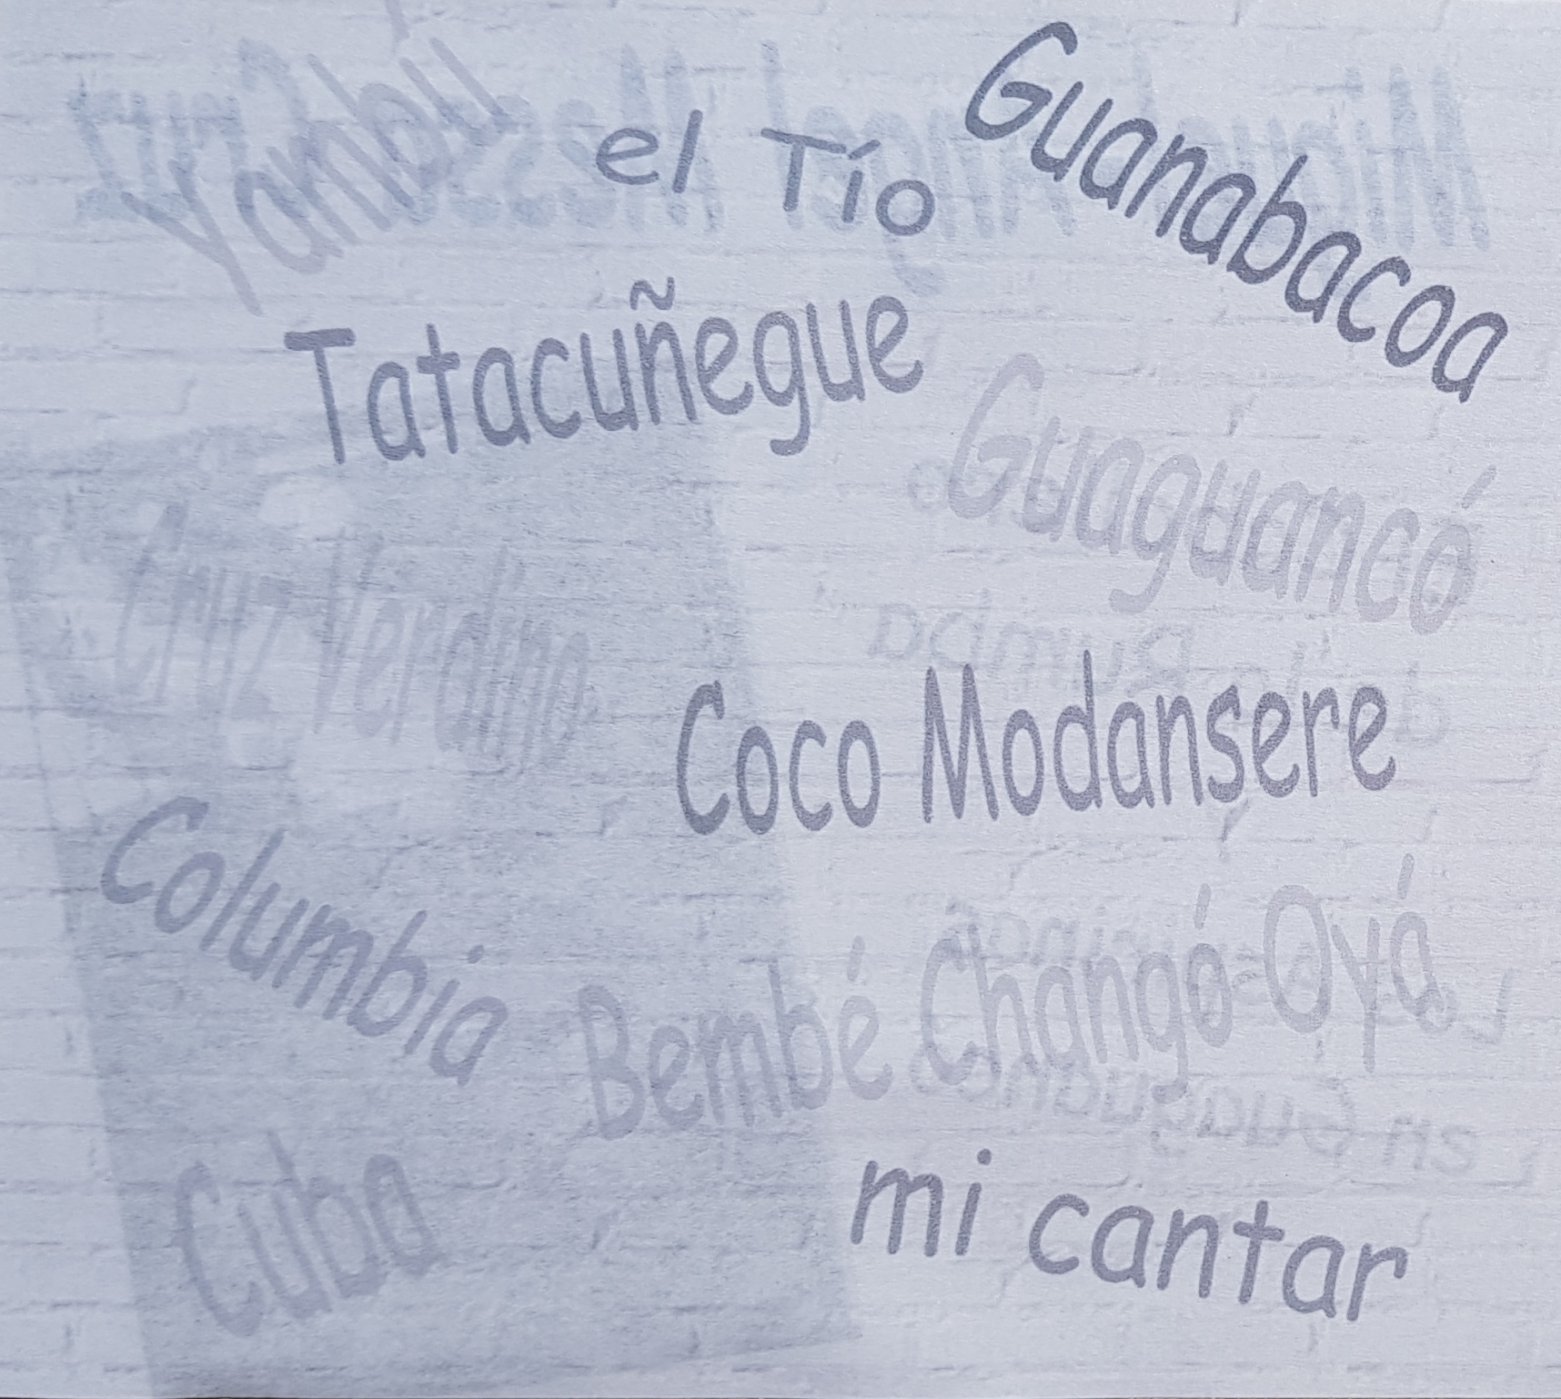 Yambú
el Tío
Guanabacoa
Tatacuñegue
Guaguancó
Cruz Verdino
Coco Modansere
Columbia
Bembé Changó Oyá
Cuba
mi cantar